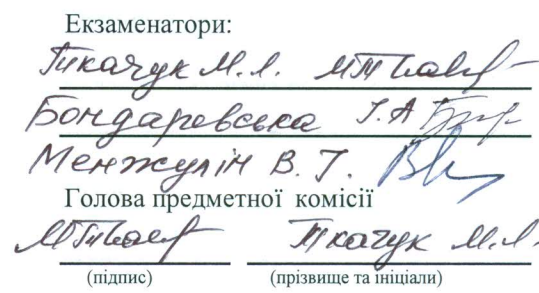 Екзаменатори:
Ткачук М.Л.
Бондаревська І.А
Менжулін В.І.
Голова предметної комісії
Ткачук М.Л.
(підпис) (прізвище та ініціали)